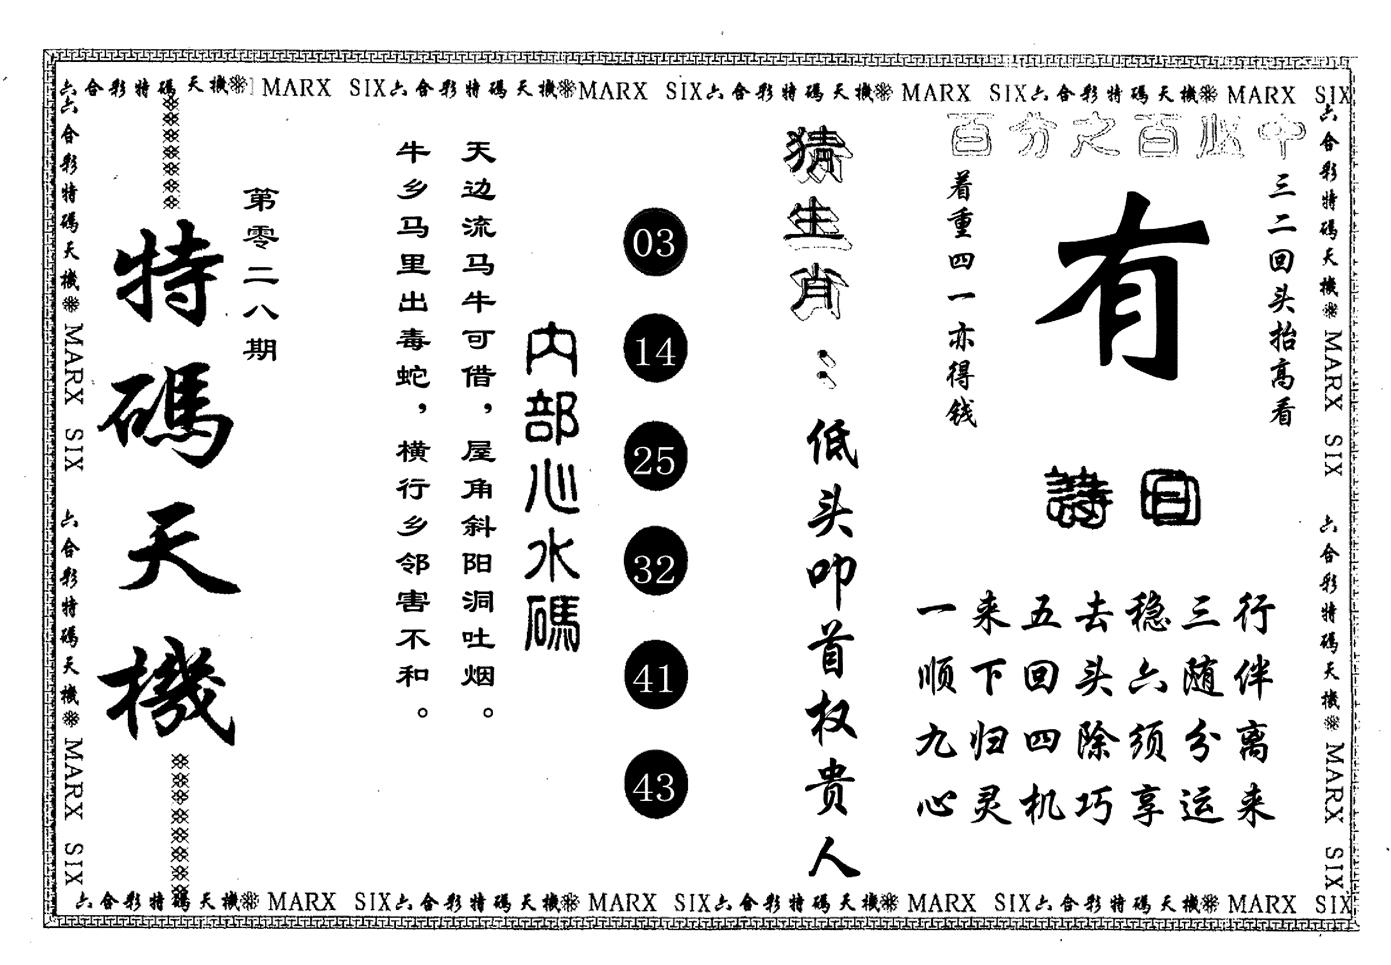 六合彩特碼天機 MARX SIX六合彩特碼天機MARX SIX六合彩特碼天機 MARX SIX六合彩特碼天機 MARX SIX
六合彩特碼天機 MARX SIX 六合彩特碼天機 MARX SIX
特碼天機
第零二八期
天边流马牛可借，屋角斜阳洞吐烟。
牛乡马里出毒蛇，横行乡邻害不和。
内部心水碼
03
14
25
32
41
43
猜生肖：低头叩首权贵人
百分之百必中
三二回头抬高看
有
着重四一亦得钱
詩曰
一来五去稳三行
顺下回头六随伴
九归四除须分离
心灵机巧享运来
六合彩特碼天機 MARX SIX 六合彩特碼天機 MARX SIX
六合彩特碼天機 MARX SIX六合彩特碼天機 MARX SIX六合彩特碼天機 MARX SIX六合彩特碼天機 MARX SIX